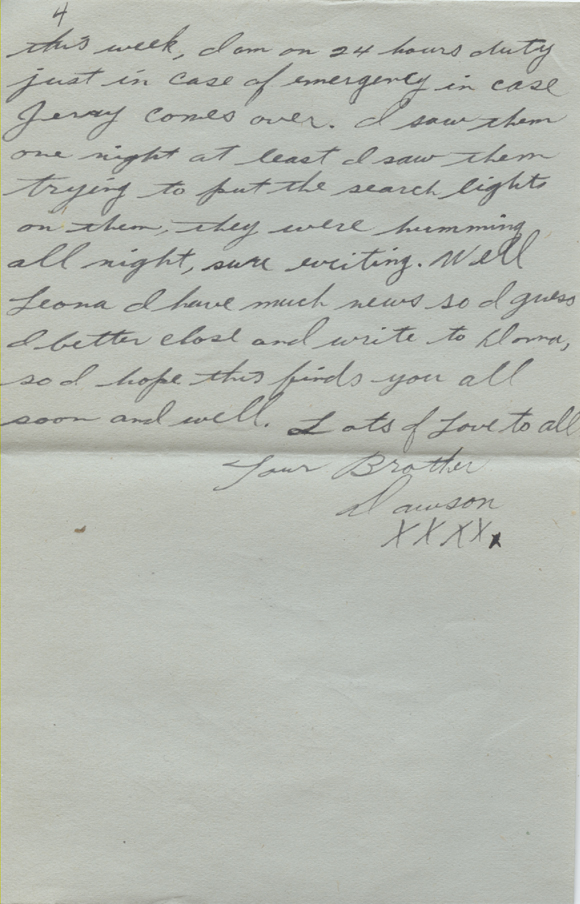 4
this week, I am on 24 hours duty
just in case of emergency in case
Jerry comes over. I saw them
one night at least I saw them
trying to put the search lights
on them, they were humming
all night, sure exciting. Well
Leona I have much news so I guess
I better close and write to
so I hope this finds you all
soon and well. Lots of Love to all
Your Brother
Dawson
XXXXx